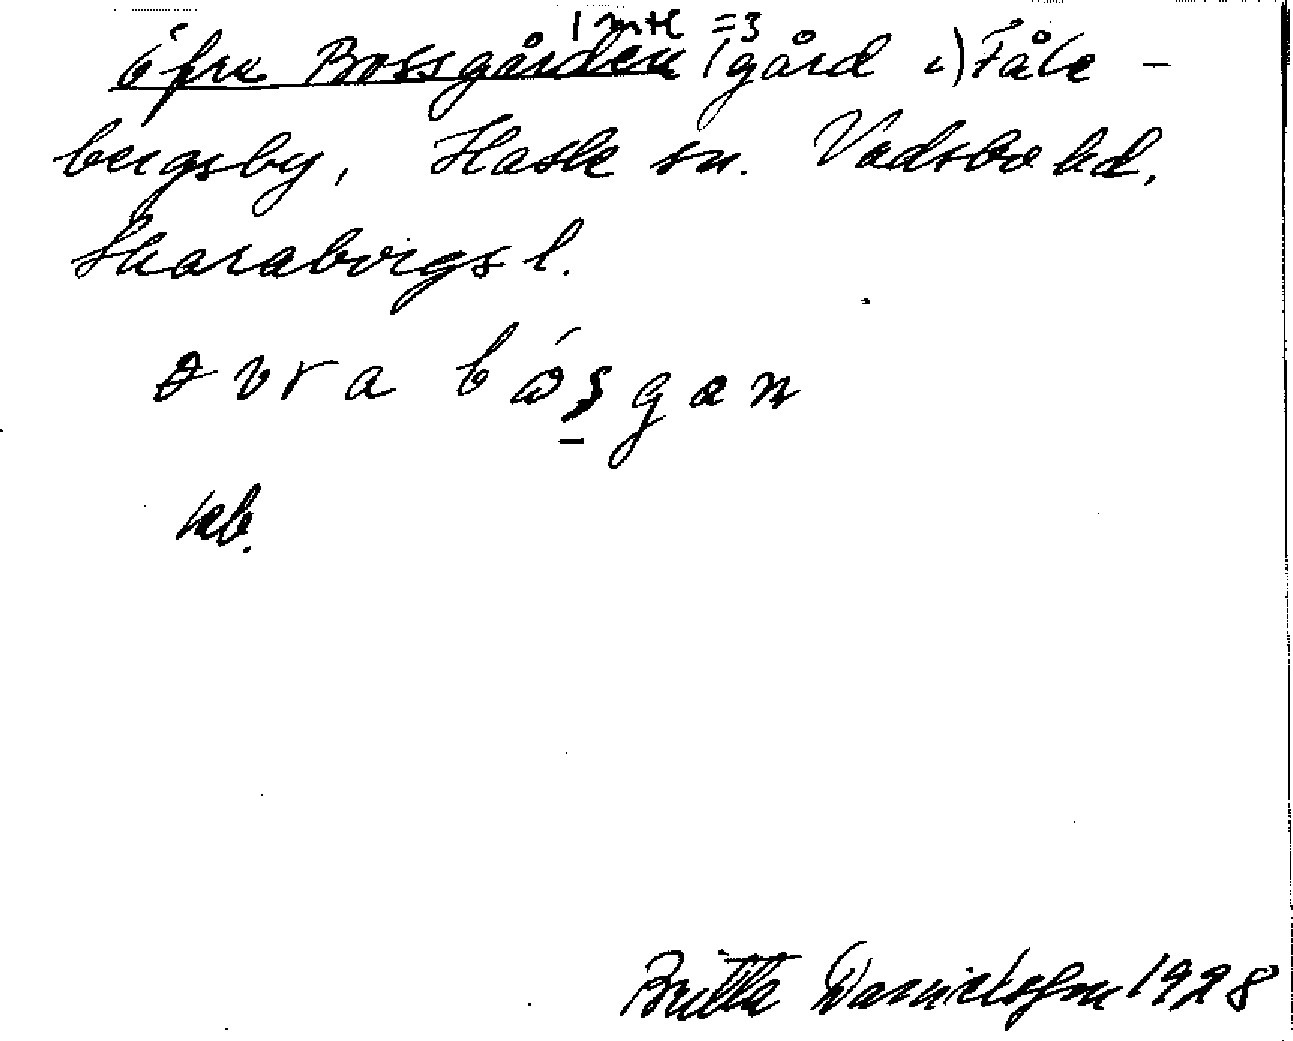 1 mtl =3
Öfre Bossgården (gård i) Fåle-
bergsby, Hassle sn. Vadsbo hd,
Skaraborgs l.
øvra bósgan
Britta Danielsson 1928